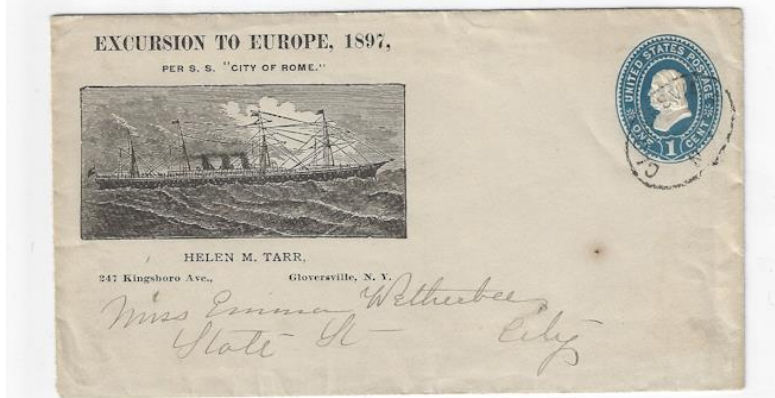 EXCURSION TO EUROPE, 1897,
PER S. S. "CITY OF ROME."
UNITED STATES POSTAGE
ONE 1 CENT
HELEN M. TARR,
247 Kingsboro Ave., Gloversville, N. Y.
Miss Emma Wetherbee
State St City